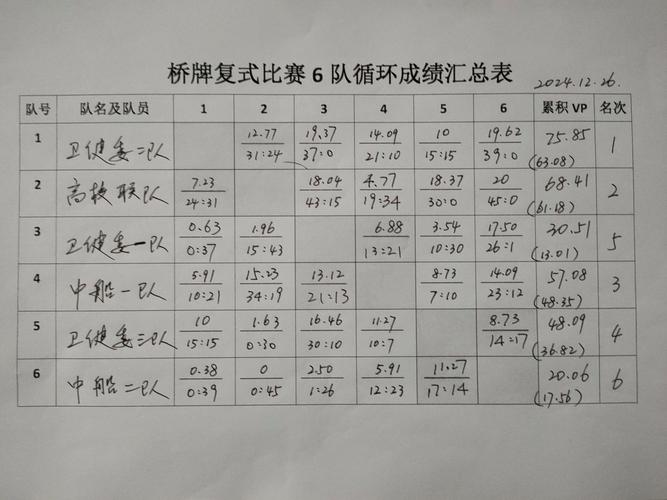 桥牌复式比赛 6 队循环成绩汇总表 2024.12.26.
队号 队名及队员 1 2 3 4 5 6 累积 VP 名次
1 卫健委二队 12.77 19.37 14.09 10 19.62 75.85 1
31:24 37:0 21:10 15:15 39:0 (63.08)
2 高校联队 7.23 18.04 4.77 18.37 20 68.41 2
24:31 43:15 19:34 30:0 45:0 (61.18)
3 卫健委一队 0.63 1.96 6.88 3.54 17.50 30.51 5
0:37 15:43 13:21 10:30 26:1 (13.01)
4 中船一队 5.91 15.23 13.12 8.73 14.09 57.08 3
10:21 34:19 21:13 7:10 23:12 (48.35)
5 卫健委三队 10 1.63 16.46 11.27 8.73 48.09 4
15:15 0:30 30:10 10:7 14:17 (36.82)
6 中船二队 0.38 0 2.50 5.91 11.27 20.06 6
0:39 0:45 1:26 12:23 17:14 (17.56)